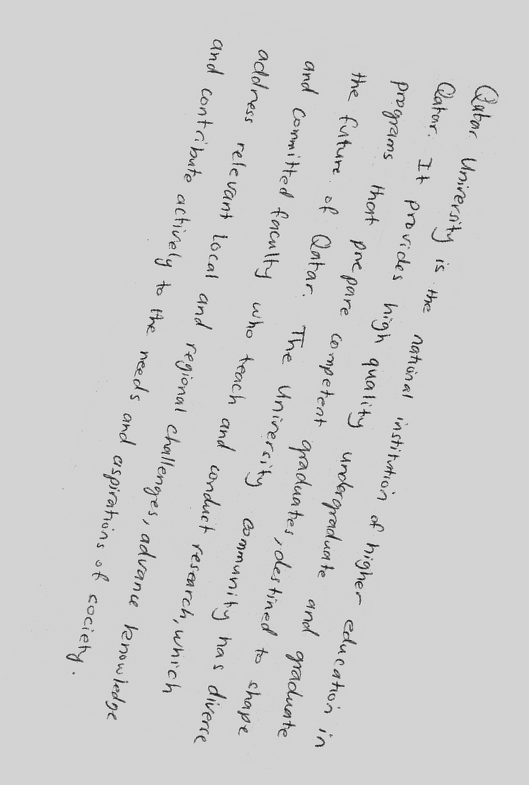 Qatar University is the national institution of higher education in
Qatar. It provides high quality undergraduate and graduate
programs that prepare competent graduates, destined to shape
the future of Qatar. The University community has diverse
and committed faculty who teach and conduct research, which
address relevant local and regional challenges, advance knowledge
and contribute actively to the needs and aspirations of society.